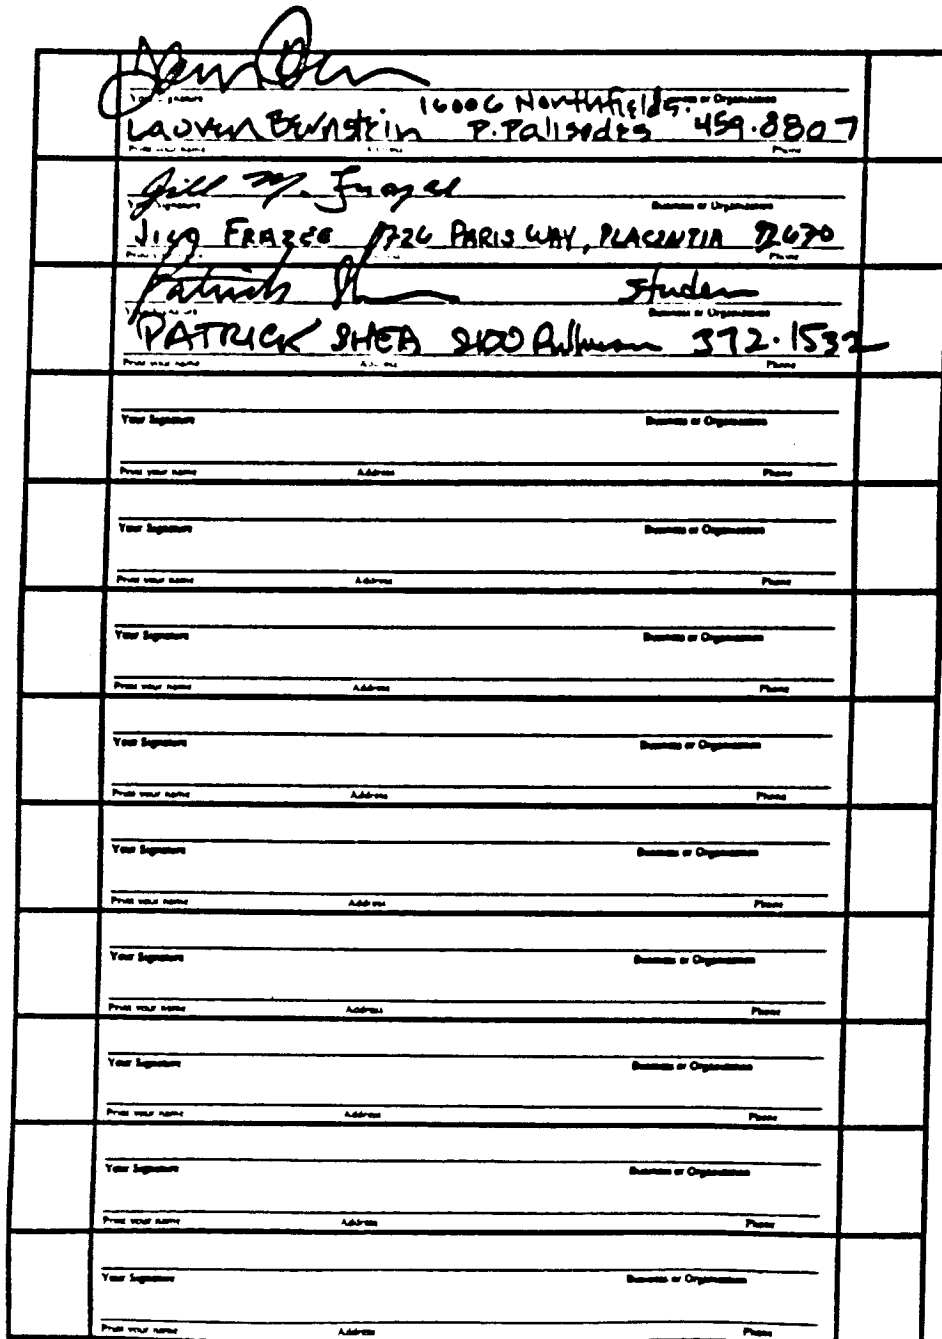 Your Signature Business or Organization
16006 Northfields.
Lauren Bernstein P. Palisades 459.8807
Print your name Address Phone
Jill M. Frazee
Your Signature Business or Organization
Jill FRAZEE 1726 PARIS WAY, PLACENTIA 92670
Print your name Address Phone
Patrick Student
Your Signature Business or Organization
PATRICK SHEA 2100 372.1532
Print your name Address Phone
Your Signature Business or Organization
Print your name Address Phone
Your Signature Business or Organization
Print your name Address Phone
Your Signature Business or Organization
Print your name Address Phone
Your Signature Business or Organization
Print your name Address Phone
Your Signature Business or Organization
Print your name Address Phone
Your Signature Business or Organization
Print your name Address Phone
Your Signature Business or Organization
Print your name Address Phone
Your Signature Business or Organization
Print your name Address Phone
Your Signature Business or Organization
Print your name Address Phone